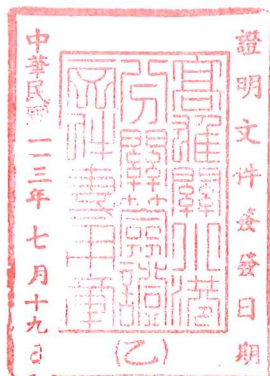 證明文件簽發日期
高雄關小港
分關簽證
件專用章
中華民國一一三年七月十九日
(乙)